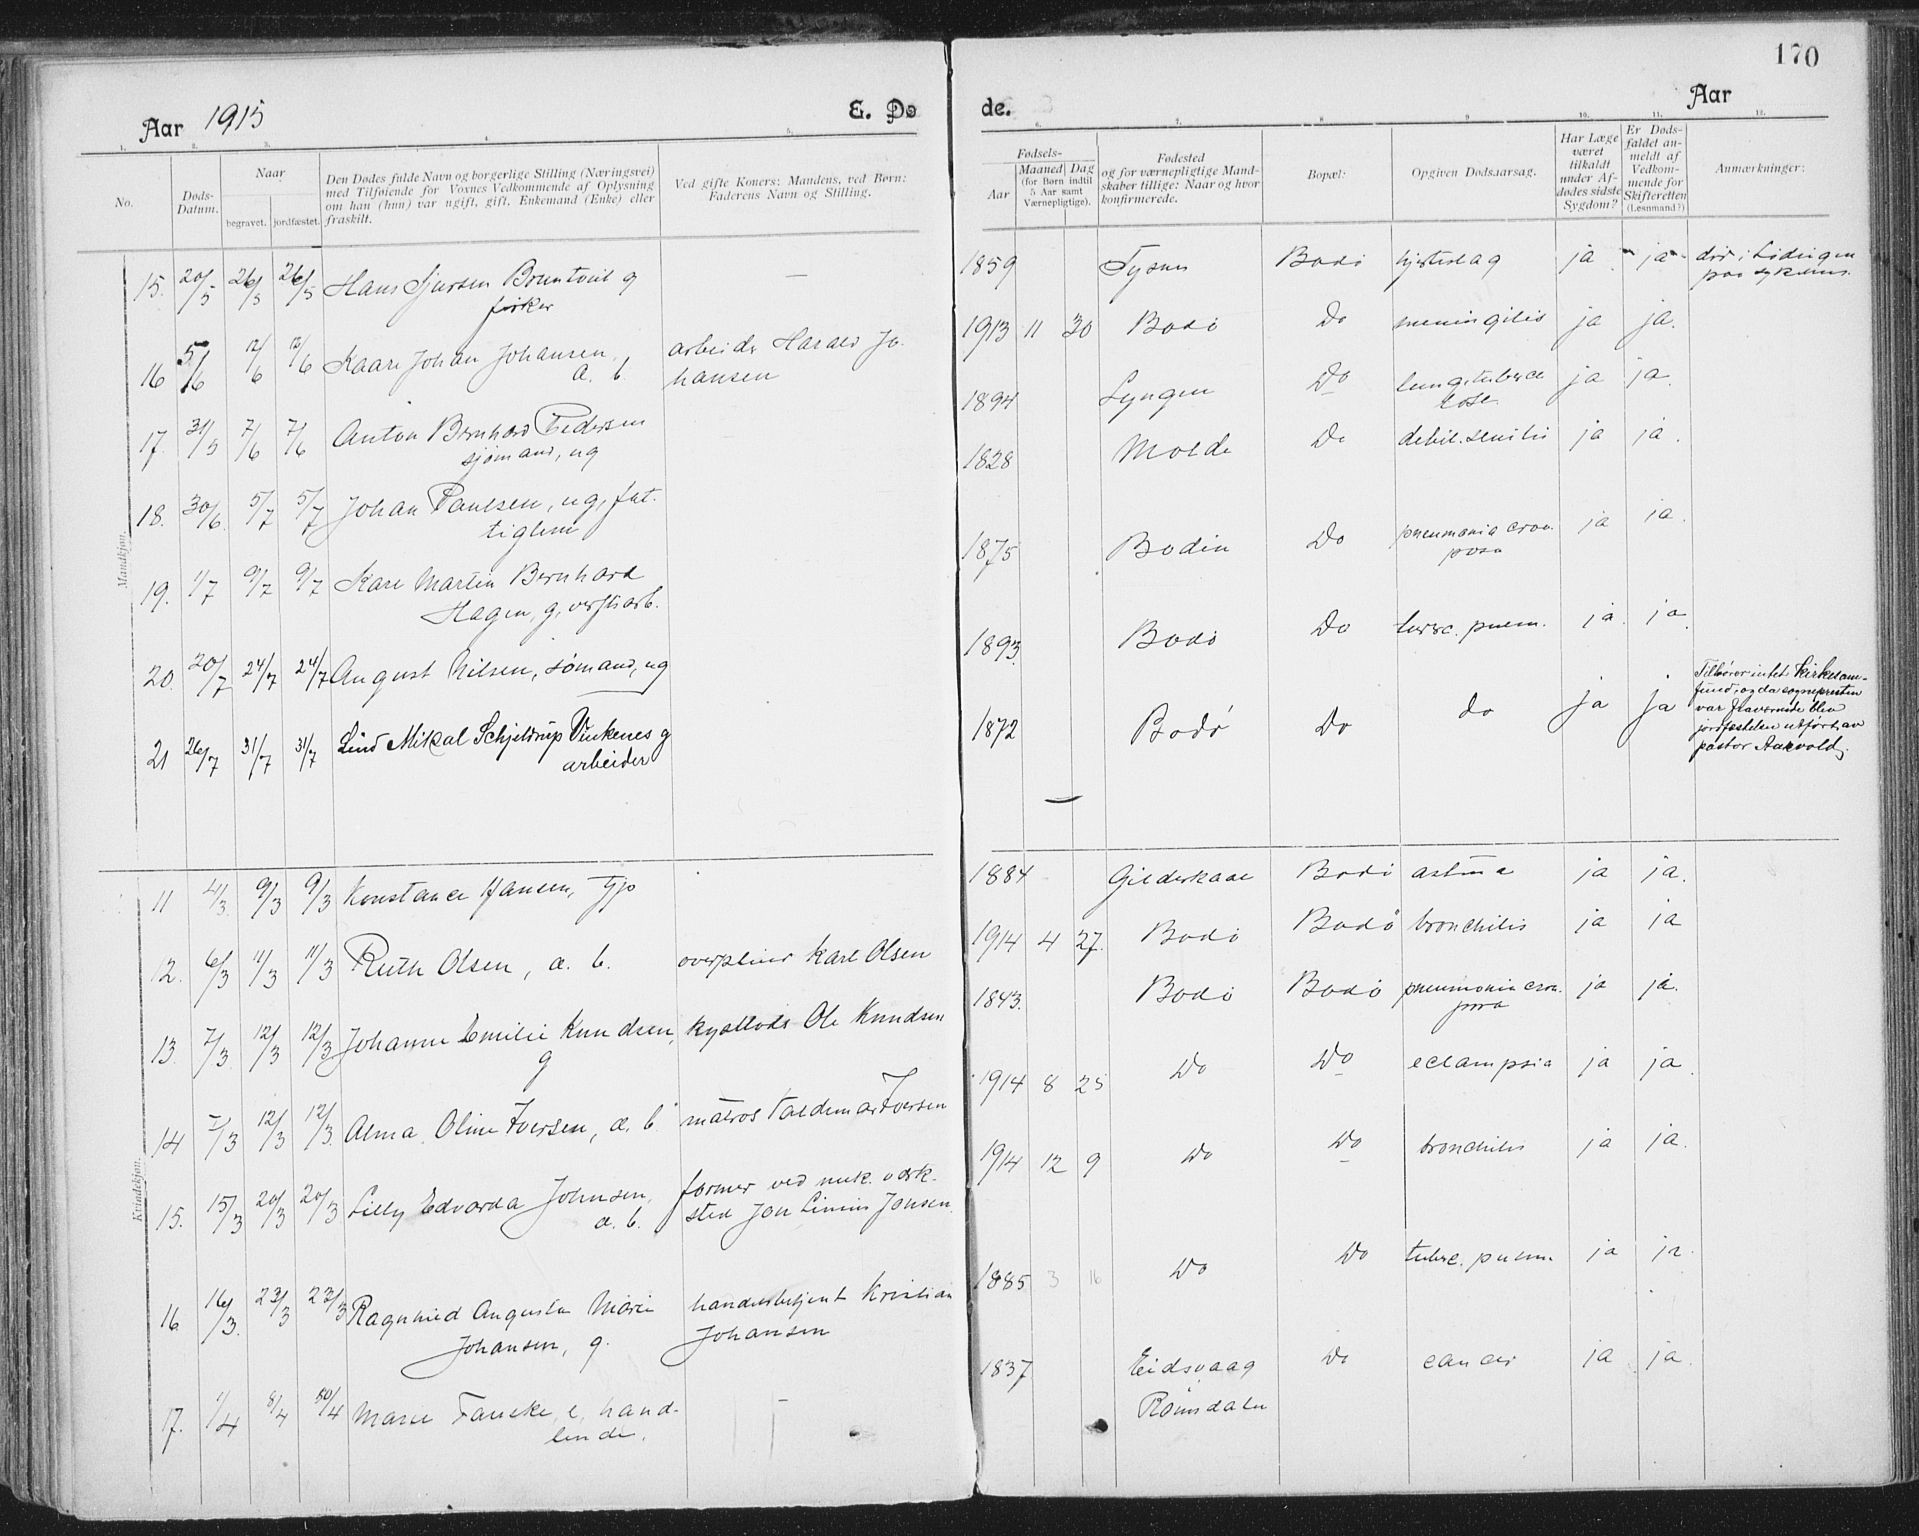 170
Aar 1915
E. Dø
de.
Aar
1. 2. 3. 4. 5. 6. 7. 8. 9. 10. 11. 12.
No.
Døds-
Datum.
Naar
begravet. jordfæstet.
Den Dødes fulde Navn og borgerlige Stilling (Næringsvei)
med Tilføiende for Voxnes Vedkommende af Oplysning
om han (hun) var ugift, gift, Enkemand (Enke) eller
fraskilt.
Ved gifte Koner: Mandens, ved Børn:
Faderens Navn og Stilling.
Fødsels-
Aar
Maaned Dag
(for Børn indtil
5 Aar samt
Værnepligtige).
Fødested
og for værnepligtige Mand-
skaber tillige: Naar og hvor
konfirmerede.
Bopæl:
Opgiven Dødsaarsag.
Har Læge
været
tilkaldt
under Af-
dødes sidste
Sygdom?
Er Døds-
faldet an-
meldt af
Vedkom-
mende for
Skifteretten
(Lensmand?)
Anmærkninger:
Mandkjøn.
15. 20/5 26/5 26/5 Hans Sjursen g — 1859 Tysnes Bodø hjerteslag ja ja død i Lødingen
fisker paa
16 5/6 12/6 12/6 Kaare Johan Johansen, arbeider Harald Jo- 1913 11 30 Bodø Do meningitis ja ja.
a. b. hansen
17. 31/5 7/6 7/6 Anton Bernhard Pedersen 1894 Lyngen Do lungetuberku ja ja.
sjømand, ug lose
18. 30/6 5/7 5/7 Johan Paulsen, ug, fat- 1828 Molde Do debil. senilis ja ja.
tiglem
19. 1/7 9/7 9/7 Karl Martin Bernhard 1875 Bodin Do pneumonia crou- ja ja.
Hagen, g, verftsarb. posa
20. 20/7 24/7 24/7 August Nilsen, sømand, ug 1893. Bodø Do tuberc. pulm. ja ja
21 26/7 31/7 31/7 Lind Mikal Schjeldrup Vinkenes g 1872 Bodø Do do ja ja
arbeider
Tilhører intet kirkesam-
fund, og da sognepresten
var fraværende blev
jordfæstelsen utført av
pastor Aakvold.
Kvindekjøn.
11 4/3. 9/3 9/3 Konstance Hansen, 1884 Gildeskaal Bodø astma ja ja.
12. 6/3 11/3 11/3 Ruth Olsen, a. b. Karl Olsen 1914 4 27. Bodø Bodø bronchitis ja ja
13. 7/3 12/3 12/3 Johanne Emilie Knudsen, kystlods Ole Knudsen 1843. Bodø Bodø pneumonia crou- ja ja.
g posa
14 7/3 12/3 12/3. Alma Oline Iversen, a. b. matros Valdemar Iversen 1914 8 25 Do Do eclampsia ja ja
15. 15/3 20/3 20/3 Lilly Edvarda Johnsen, former ved mek. verk- 1914 12 9 Do Do bronchitis ja ja.
a. b. sted Jon Jonsen.
16 16/3. 23/3 23/3 Ragnhild Augusta Marie handelsbetjent Kristian 1885 3 16 Do Do tuberc. pulm. ja ja.
Johansen, g. Johansen
17. 1/4 8/4 /4 Marie e, hand- — 1837 Eidsvaag Do cancer ja ja.
lende. Romsdalen